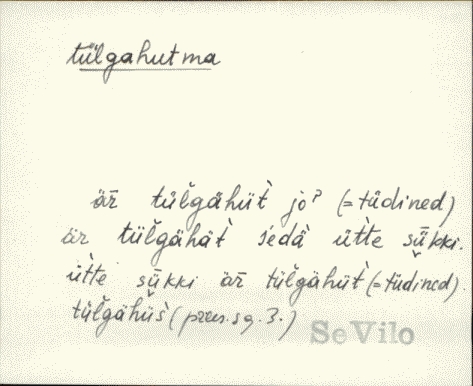 tülgahutma
är tülgähüt̀ jo? (=tüdined)
är tülgähät̀ śedä ütte sükki.
ütte sükki är tülgähüt̀ (=tüdined).
tülgähüs̀ (präs. sg. 3.)
SeVilo